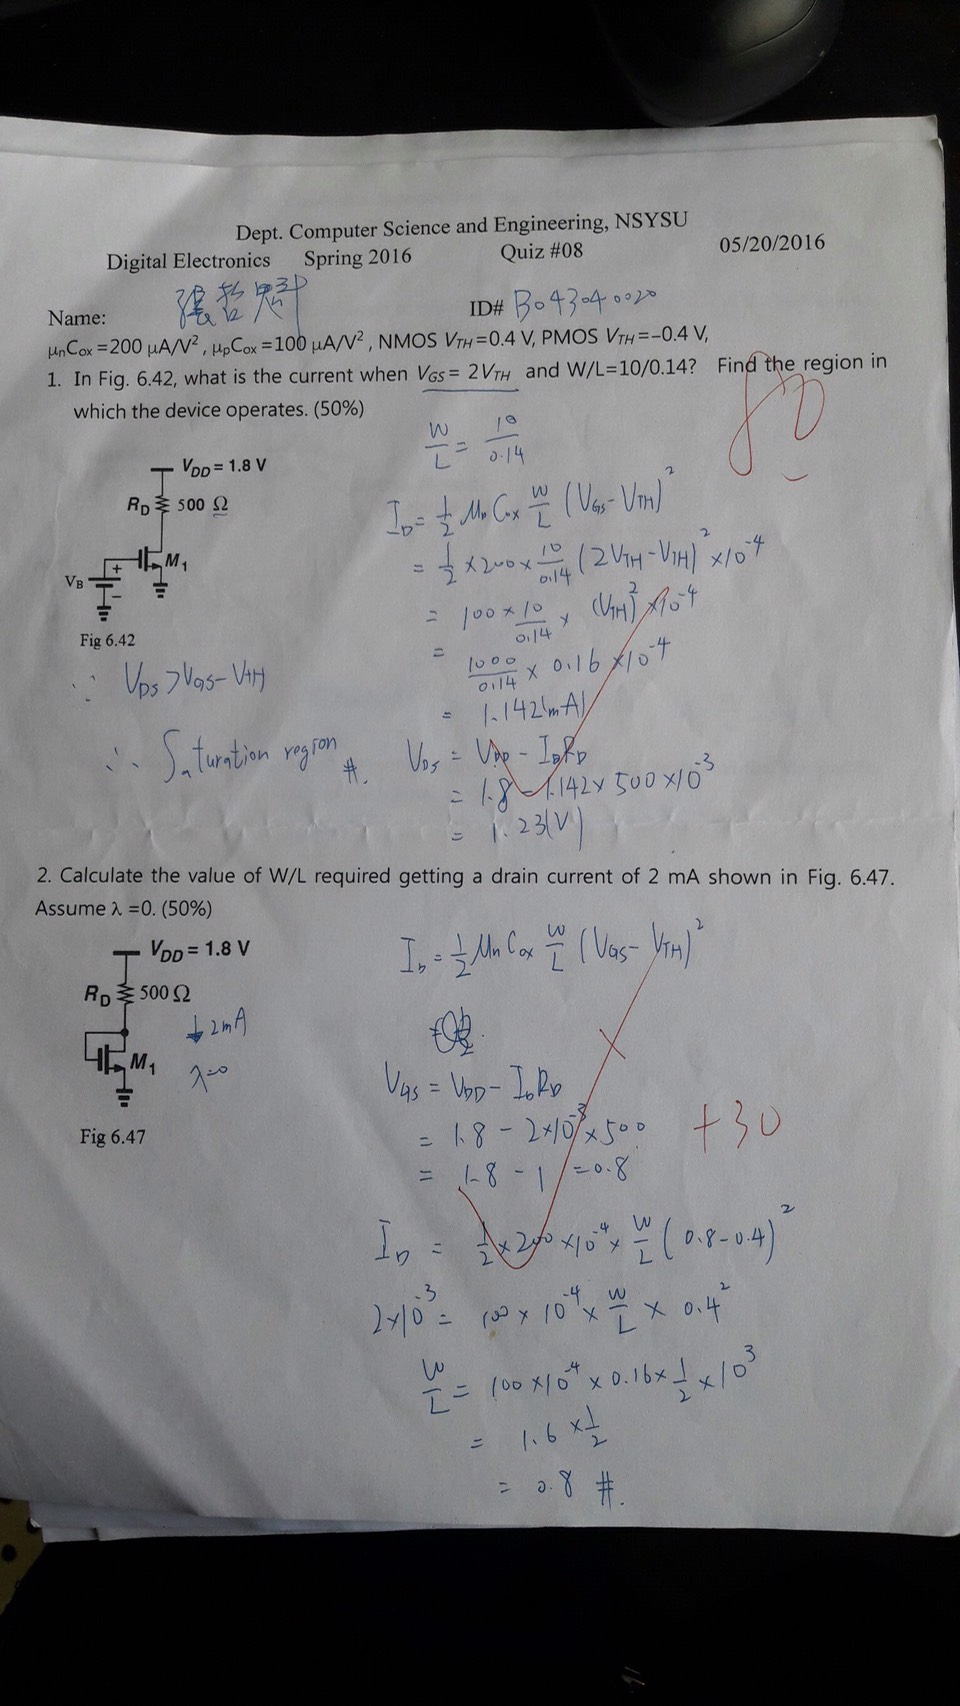 Dept. Computer Science and Engineering, NSYSU
Digital Electronics Spring 2016 Quiz #08 05/20/2016
Name: ID# B043040020
μnCox =200 μA/V², μpCox =100 μA/V², NMOS VTH =0.4 V, PMOS VTH =−0.4 V,
1. In Fig. 6.42, what is the current when VGS = 2VTH and W/L=10/0.14? Find the region in
which the device operates. (50%)
80
W/L = 10/0.14
VDD = 1.8 V
RD 500 Ω
M1
VB
+
−
Fig 6.42
ID = 1/2 μn Cox W/L (VGS - VTH)²
= 1/2 × 200 × 10/0.14 (2VTH - VTH)² × 10⁻⁴
= 100 × 10/0.14 × (VTH)² × 10⁻⁴
= 1000/0.14 × 0.16 × 10⁻⁴
= 1.142(mA)
VDS = VDD - IDRD
= 1.8 - 1.142 × 500 × 10⁻³
= 1.23(V)
∵ VDS > VGS - VTH
∴ Saturation region #.
2. Calculate the value of W/L required getting a drain current of 2 mA shown in Fig. 6.47.
Assume λ =0. (50%)
VDD = 1.8 V
RD 500 Ω
↓ 2mA
M1
λ=0
Fig 6.47
ID = 1/2 μn Cox W/L (VGS - VTH)²
VGS = VDD - IDRD
= 1.8 - 2×10⁻³ × 500
= 1.8 - 1 = 0.8
+30
ID = 1/2 × 200 × 10⁻⁴ × W/L (0.8-0.4)²
2×10⁻³ = 100 × 10⁻⁴ × W/L × 0.4²
W/L = 100 × 10⁻⁴ × 0.16 × 1/2 × 10³
= 1.6 × 1/2
= 0.8 #.